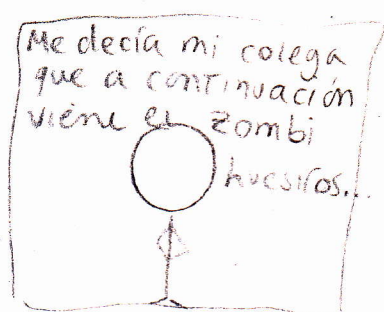 Me decía mi colega
que a continuación
viene el zombi
huesitos...